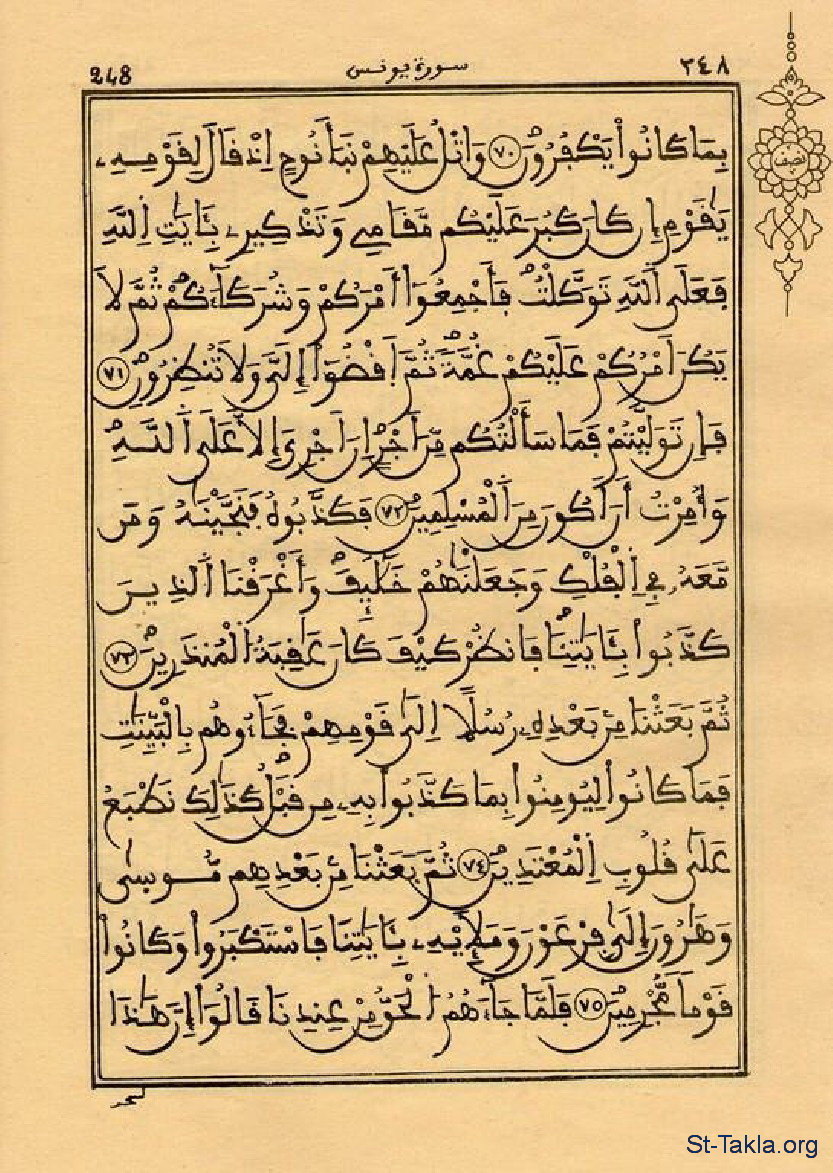 248 سورة يونس ٢٤٨
نصف
بِمَا كَانُوا۟ يَكْفُرُونَ ٧٠ وَاتْلُ عَلَيْهِمْ نَبَأَ نُوحٍ اِذْ قَالَ لِقَوْمِهِۦ
يَٰقَوْمِ إِن كَانَ كَبُرَ عَلَيْكُم مَّقَامِے وَتَذْكِيرِے بِـَٔايَٰتِ اِ۬للَّهِ
فَعَلَى اَ۬للَّهِ تَوَكَّلْتُ فَأَجْمِعُوٓا۟ أَمْرَكُمْ وَشُرَكَآءَكُمْ ثُمَّ لَا
يَكُنَ اَمْرُكُمْ عَلَيْكُمْ غُمَّةً ثُمَّ اَ۪قْضُوٓا۟ إِلَىَّ وَلَا تُنظِرُونِ ٧١
فَإِن تَوَلَّيْتُمْ فَمَا سَأَلْتُكُم مِّنَ اَجْرٍ اِنَ اَجْرِىَ إِلَّا عَلَى اَ۬للَّهِ
وَأُمِرْتُ أَنَ اَكُونَ مِنَ اَ۬لْمُسْلِمِينَ ٧٢ فَكَذَّبُوهُ فَنَجَّيْنَٰهُ وَمَن
مَّعَهُۥ فِے اِ۬لْفُلْكِ وَجَعَلْنَٰهُمْ خَلَٰٓئِفَ وَأَغْرَقْنَا اَ۬لذِينَ
كَذَّبُوا۟ بِـَٔايَٰتِنَا فَانظُرْ كَيْفَ كَانَ عَٰقِبَةُ اُ۬لْمُنذَرِينَ ٧٣
ثُمَّ بَعَثْنَا مِنۢ بَعْدِهِۦ رُسُلًا اِلَىٰ قَوْمِهِمْ فَجَآءُوهُم بِالْبَيِّنَٰتِ
فَمَا كَانُوا۟ لِيُومِنُوا۟ بِمَا كَذَّبُوا۟ بِهِۦ مِن قَبْلُ كَذَٰلِكَ نَطْبَعُ
عَلَىٰ قُلُوبِ اِ۬لْمُعْتَدِينَ ٧٤ ثُمَّ بَعَثْنَا مِنۢ بَعْدِهِم مُّوسَىٰ
وَهَٰرُونَ إِلَىٰ فِرْعَوْنَ وَمَلَإِيْهِۦ بِـَٔايَٰتِنَا فَاسْتَكْبَرُوا۟ وَكَانُوا۟
قَوْماً مُّجْرِمِينَ ٧٥ فَلَمَّا جَآءَهُمُ اُ۬لْحَقُّ مِنْ عِندِنَا قَالُوٓا۟ إِنَّ هَٰذَا
لسحر
St-Takla.org